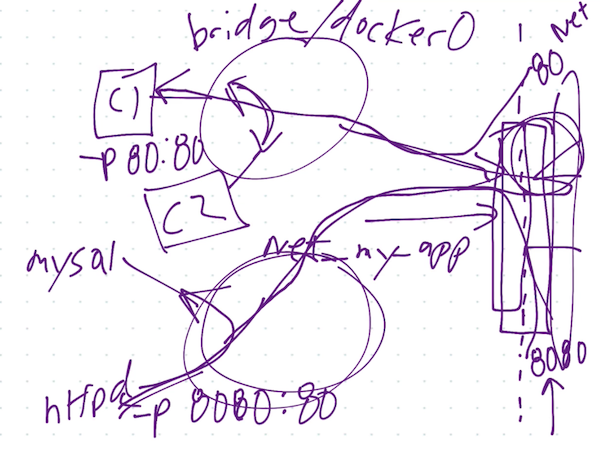 bridge/docker0
Net
80
C1
-p 80:80
C2
mysql
Net my-app
8080
httpd
-p 8080:80